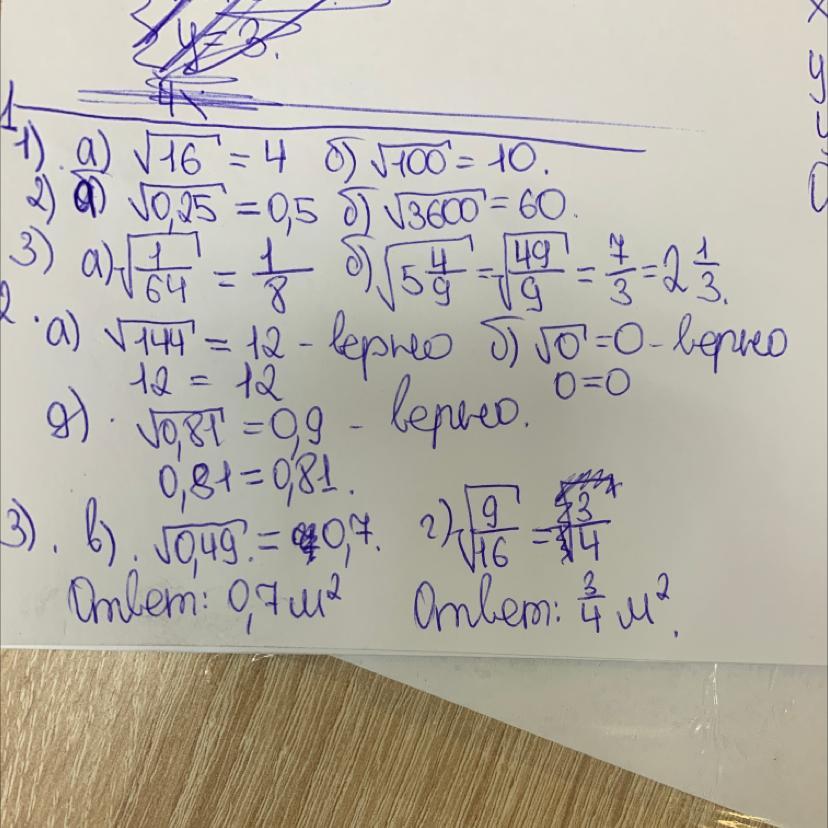 y = 3.
1
1). а) √16 = 4 б) √100 = 10.
2) а) √0,25 = 0,5 б) √3600 = 60.
3) а) √1/64 = 1/8 б) √5 4/9 = √49/9 = 7/3 = 2 1/3.
2. а) √144 = 12 - верно б) √0 = 0 - верно
12 = 12 0 = 0
д). √0,81 = 0,9 - верно.
0,81 = 0,81.
3). в). √0,49 = 0,7. г) √9/16 = 3/4
Ответ: 0,7 м² Ответ: 3/4 м².